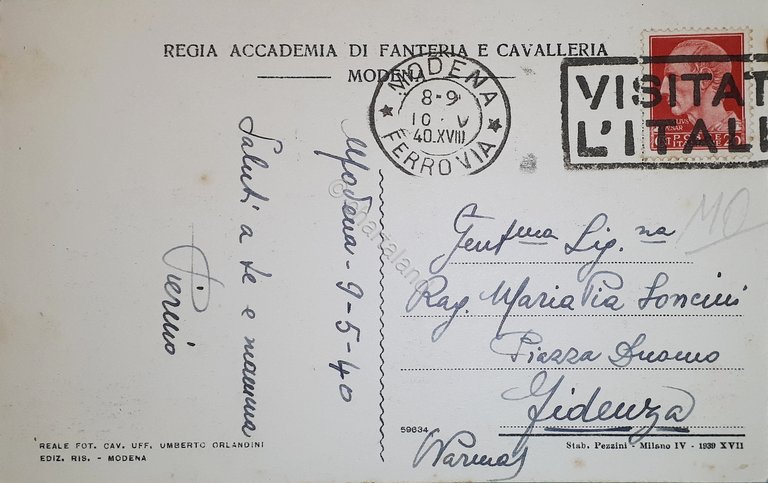 REGIA ACCADEMIA DI FANTERIA E CAVALLERIA
MODENA
MODENA
8-9
10 · V
40.XVIII
FERROVIA
VISITAT
L'ITALI
Saluti a te e mamma
Pierino
Modena - 9-5-40
Gent.ma Sig.na
Rag. Maria Pia Soncini
Piazza Duomo
Fidenza
(Parma)
MO
59634
REALE FOT. CAV. UFF. UMBERTO ORLANDINI
EDIZ. RIS. - MODENA
Stab. Pezzini - Milano IV - 1939 XVII